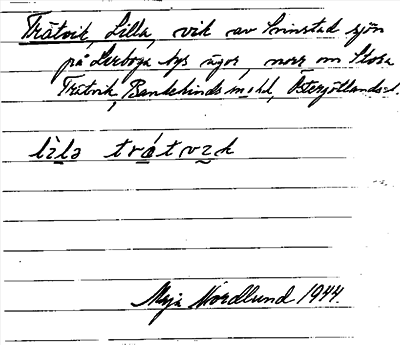 Tråtvik, Lilla, vik av Svinstad sjön
på Lerboga bys ägor, norr om Stora
Tråtvik, Bankekinds m o hd, Östergötlands l.
lìlə tråtvɪk
Maja Nordlund 1944.